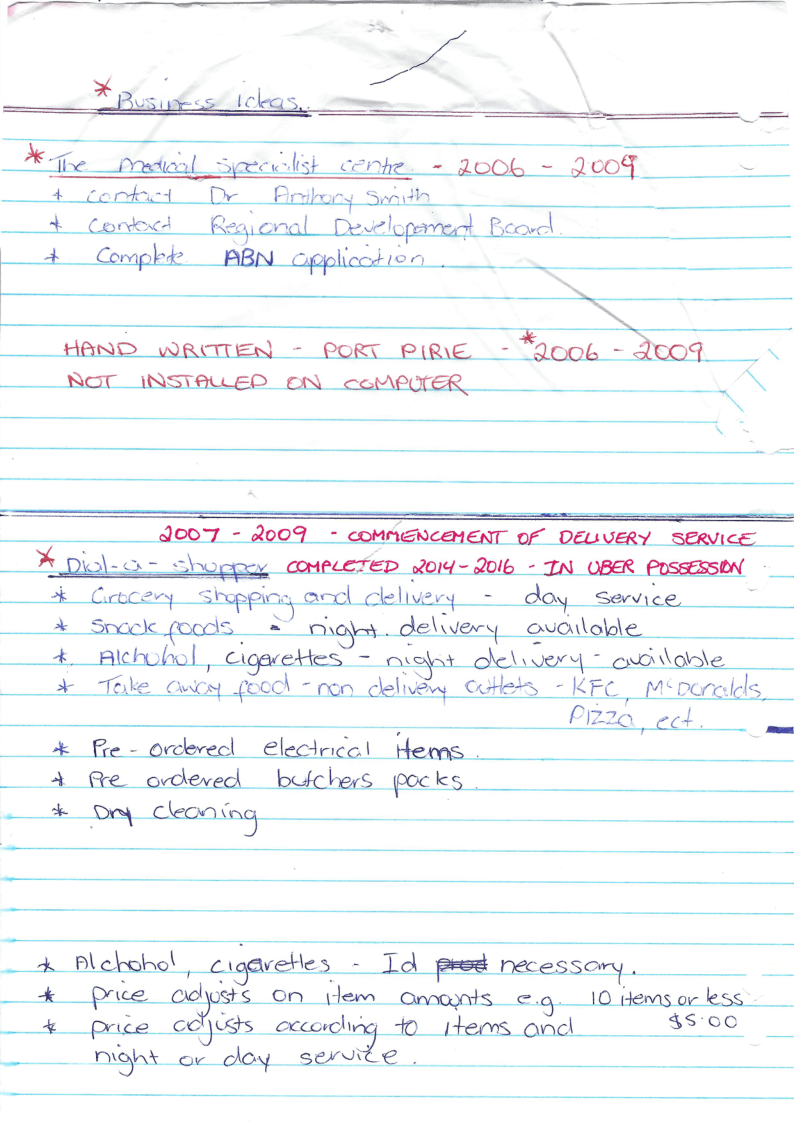 * Business ideas.
* The medical specialist centre - 2006 - 2009
* contact Dr Anthony Smith
* Contact Regional Developement Board.
* Complete ABN application.
HAND WRITTEN - PORT PIRIE - *2006 - 2009
NOT INSTALLED ON COMPUTER
2007 - 2009 - COMMENCEMENT OF DELIVERY SERVICE
* Dial-a-shopper COMPLETED 2014-2016 - IN UBER POSSESSION
* Grocery shopping and delivery - day service
* Snack foods - night. delivery available
* Alchohol, cigerettes - night delivery - available
* Take away food - non delivery outlets - KFC, McDonalds,
Pizza, ect.
* Pre-ordered electrical items.
* Pre ordered butchers packs.
* Dry cleaning
* Alchohol, cigarettes - Id prod necessary.
* price adjusts on item amounts e.g. 10 items or less
* price adjusts according to items and $5.00
night or day service.